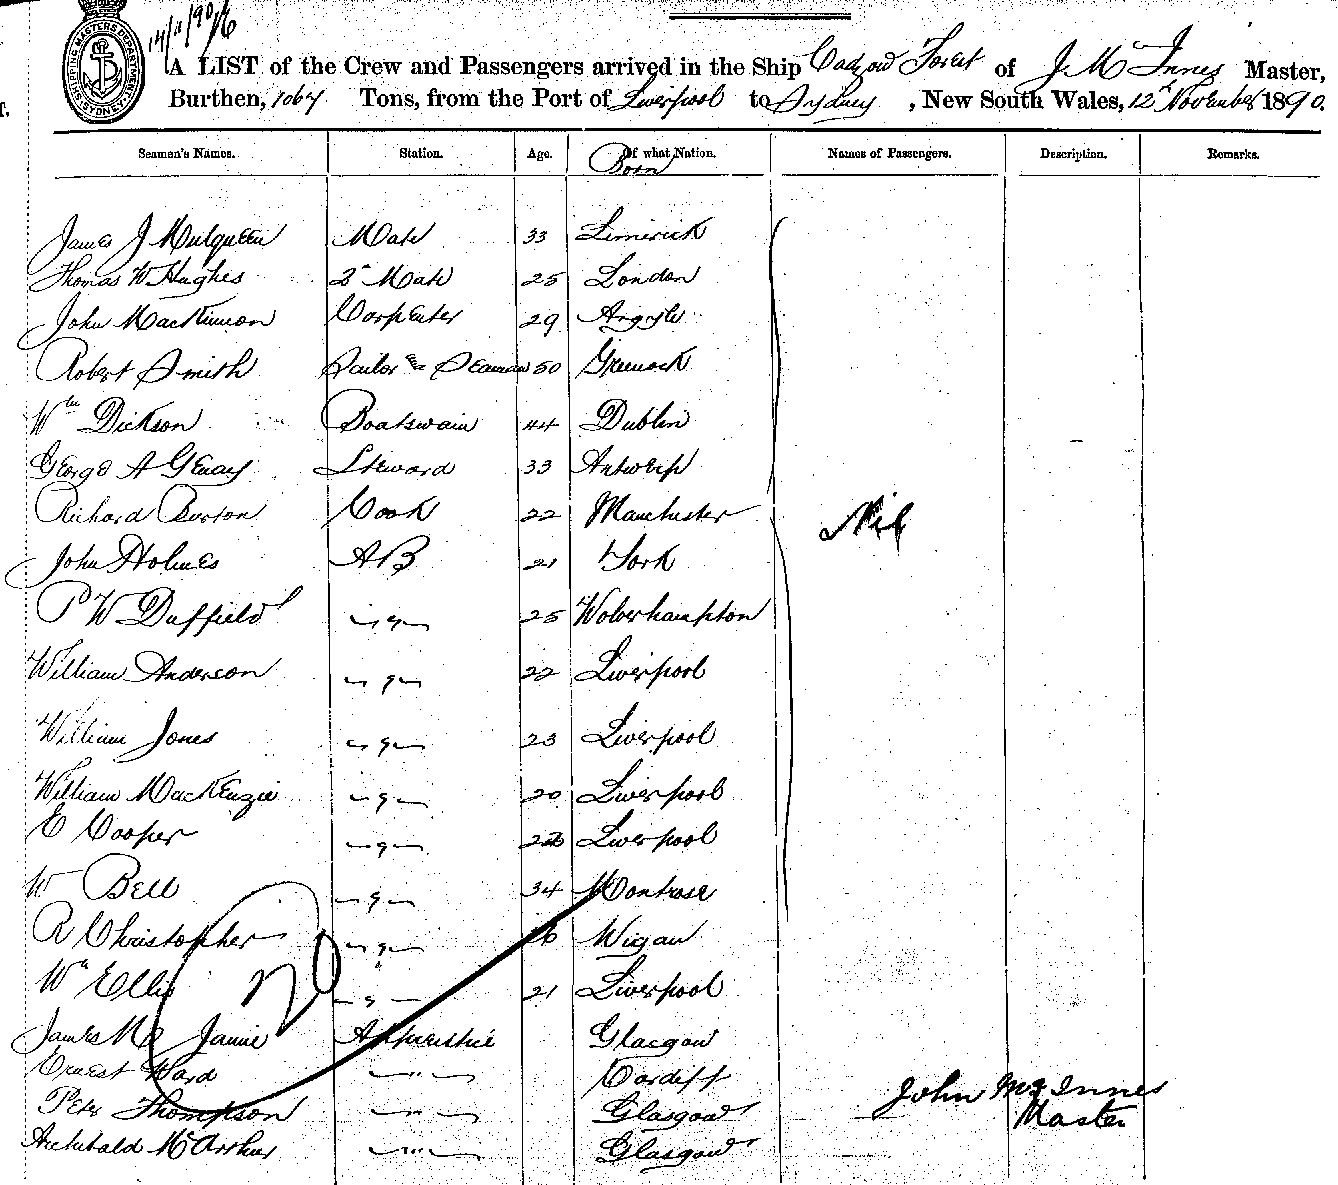 14/11/90/6
A LIST of the Crew and Passengers arrived in the Ship Cadzow Forest of J. Mc Innes Master,
Burthen, 1064 Tons, from the Port of Liverpool to Sydney, New South Wales, 12th November 1890.
Seamen's Names. Station. Age. Of what Nation. Names of Passengers. Description. Remarks.
Born
James J Mulqueen Mate 33 Limerick
Thomas W Hughes 2d Mate 25 London
John MacKinnon Carpenter 29 Argyle
Robert Smith Sailor & Seaman 50 Greenock
Wm Dickson Boatswain 44 Dublin
George A Steward 33 Antwerp
Richard Burton Cook 22 Manchester
Nil
John Holmes AB 21 York
P W Duffield " 25 Wolverhampton
William Anderson " 22 Liverpool
William Jones " 23 Liverpool
William MacKenzie " 20 Liverpool
E Cooper " Liverpool
W Bell " 34 Montrose
R Christopher " Wigan
Wm Ellis " 21 Liverpool
20
James Mc Jannie Apprentice Glasgow
Ernest Ward " Cardiff
Peter Thompson " Glasgow
Archibald McArthur " Glasgow
John McInnes
Master